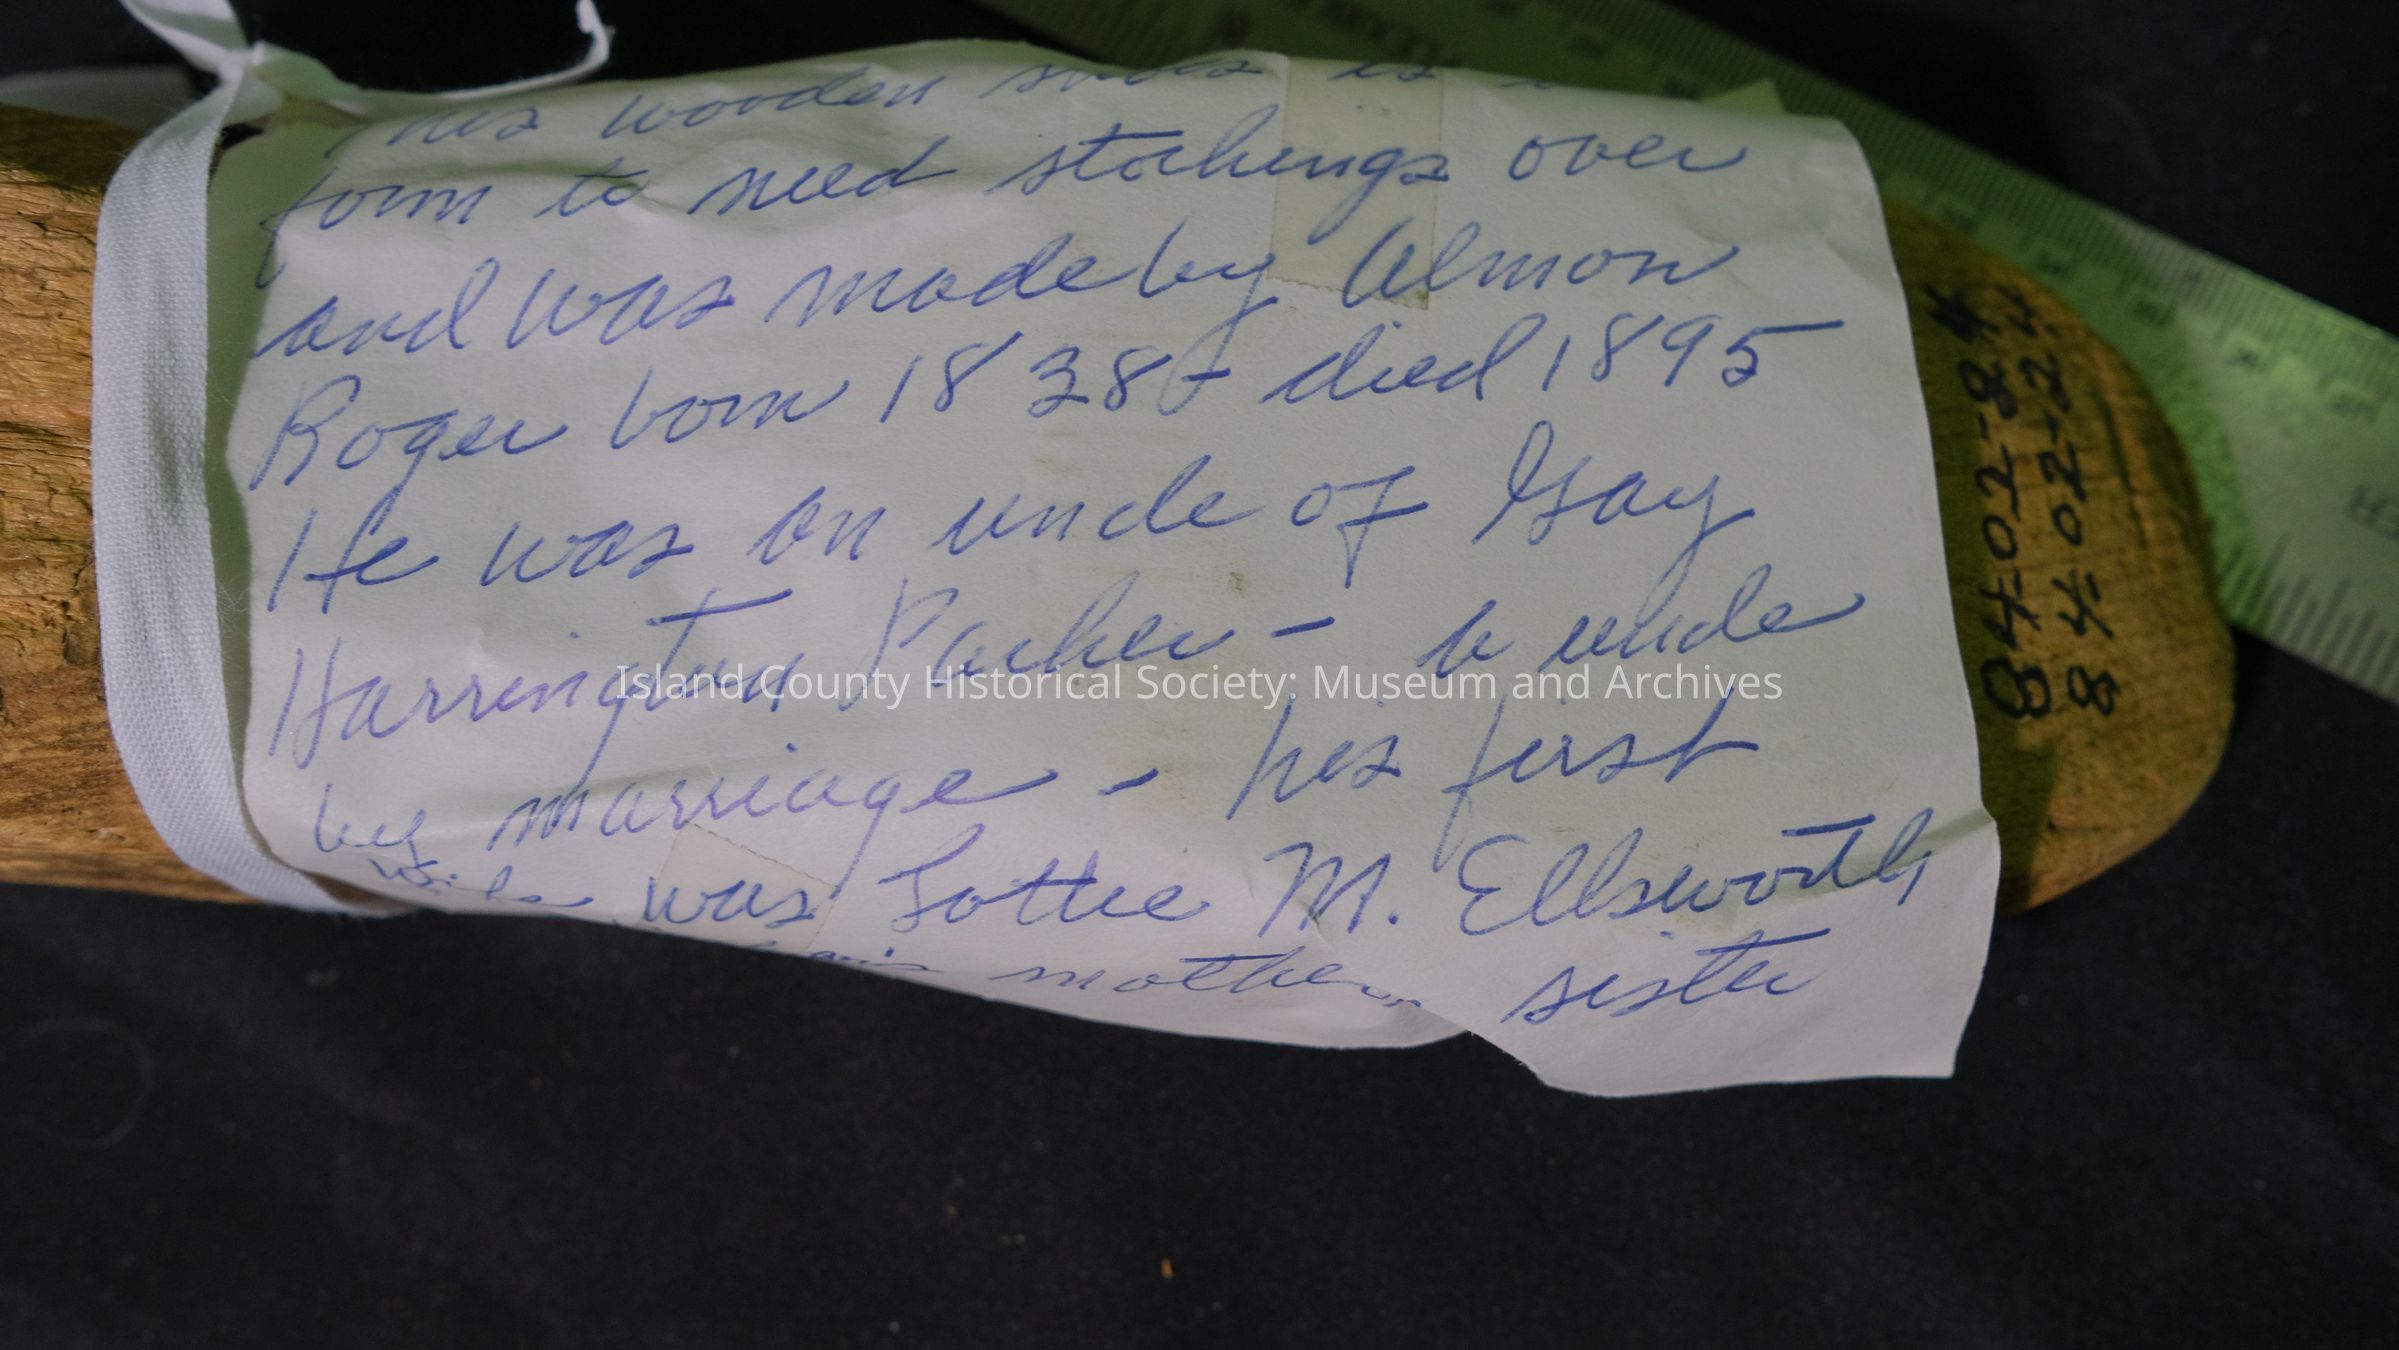 This wooden shoes is
form to need stockings over
and was made by Almon
Roger born 1838 - died 1895
He was an uncle of Gay
Harrington Parker - a uncle
by marriage - his first
Wife was Lottie M. Ellsworth
mother sister
84-02-24
84-02-24
Island County Historical Society: Museum and Archives